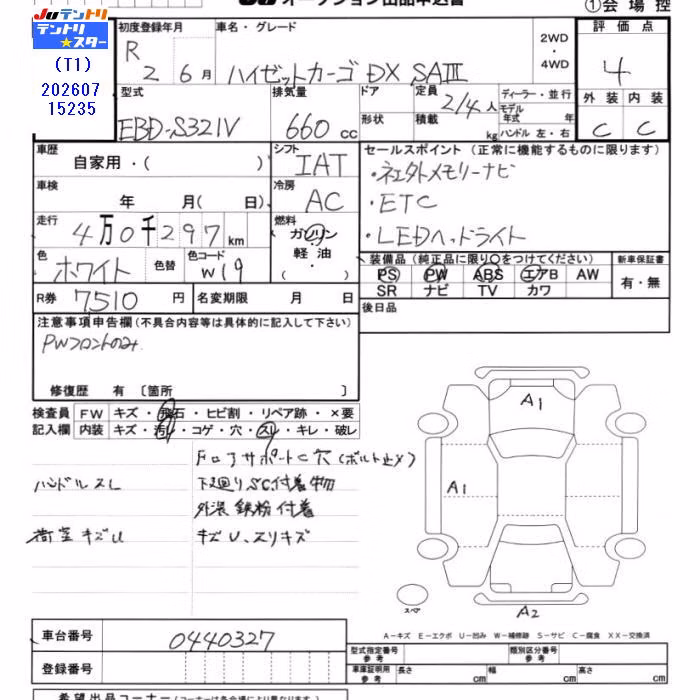 JUテントリ
テントリ
★スター
(T1)
202607
15235
オークション出品申込書
①会場控
初度登録年月
R 2 6月
車名・グレード
ハイゼットカーゴ DX SAⅢ
2WD
・
4WD
評価点
4
外装 内装
C C
型式
EBD-S321V
排気量
660 cc
ドア
形状
定員
2/4人
積載
kg
ディーラー・並行
モデル
年式 年
ハンドル 左・右
車歴
自家用・( )
シフト
IAT
車検
年 月( 日)
冷房
AC
走行
4万0千297km
燃料
ガソリン
軽油
・
色
ホワイト
色替
色コード
W19
R券
7510円
名変期限 月 日
セールスポイント (正常に機能するものに限ります)
・社外メモリーナビ
・ETC
・LEDヘッドライト
装備品(純正品に限り○をつけてください)
PS PW ABS エアB AW
SR ナビ TV カワ
新車保証書
有・無
後日品
注意事項申告欄(不具合内容等は具体的に記入して下さい)
PWフロントのみ
修復歴 有 〔箇所 〕
検査員
記入欄
FW キズ・飛石・ヒビ割・リペア跡・×要
内装 キズ・汚レ・コゲ・穴・スレ・キレ・破レ
ハンドルスレ
荷室キズU
下廻りSC付着物
外装 鉄粉付着
キズU、スリキズ
A1
A1
A2
スペア
A－キズ E－エクボ U－凹み W－補修跡 S－サビ C－腐食 XX－交換済
車台番号
0440327
登録番号
型式指定番号
参考
類別区分番号
参考
車庫証明用
参考
長さ cm
幅 cm
高さ cm
希望出品コーナー(コーナーは各会場により異なります)